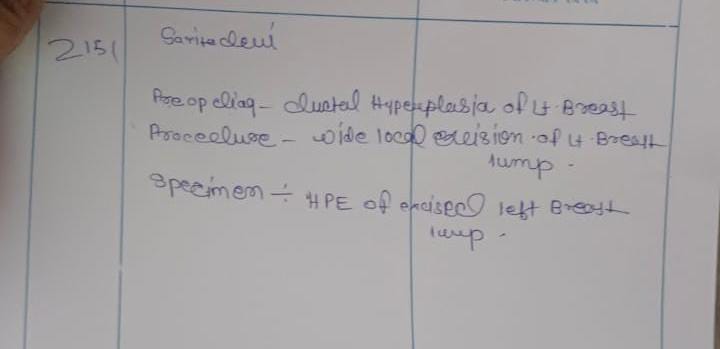 2151 Saritadevi
Preop diag - ductal Hyperplasia of Lt. Breast
Procedure - wide local excision of Lt. Breast
lump -
Specimen ÷ HPE of excised left Breast
lump -